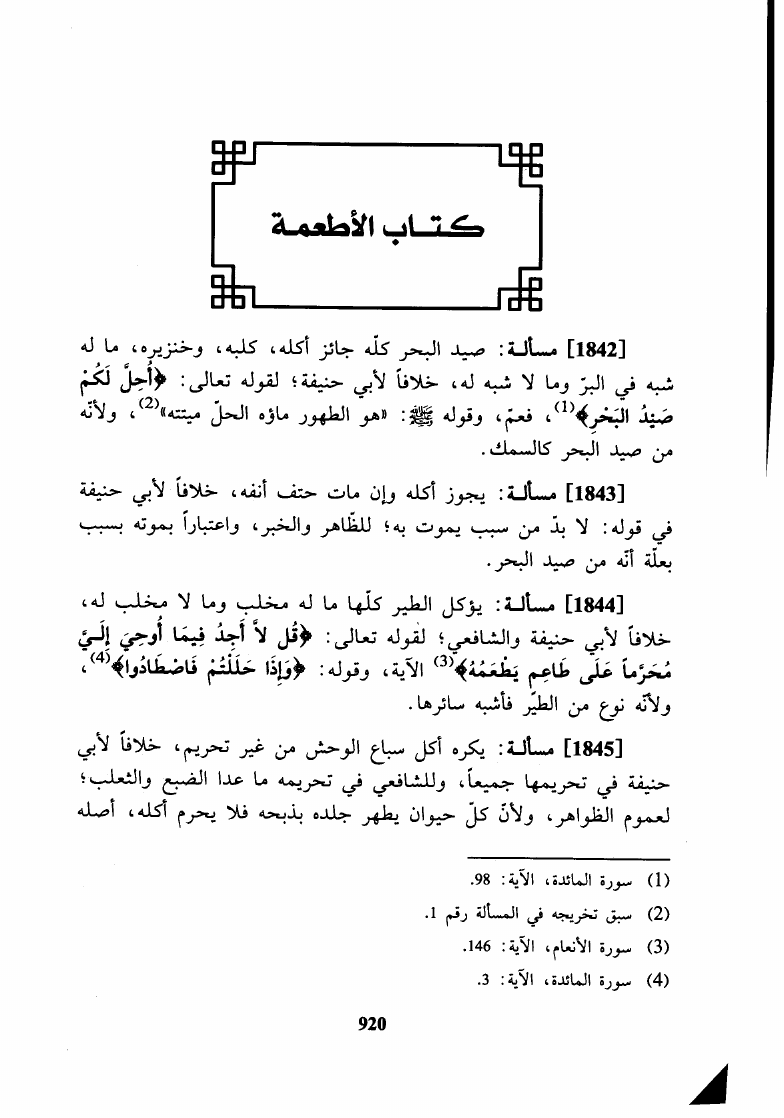 كتاب الأطعمة
[1842] مسألة: صيد البحر كلّه جائز أكله، كلبه، وخنزيره، ما له
شبه في البرّ وما لا شبه له، خلافاً لأبي حنيفة؛ لقوله تعالى: ﴿أُحِلَّ لَكُمْ
صَيْدُ البَحْرِ﴾(1)، فعمّ، وقوله ﷺ: «هو الطهور ماؤه الحلّ ميتته»(2)، ولأنّه
من صيد البحر كالسمك.
[1843] مسألة: يجوز أكله وإن مات حتف أنفه، خلافاً لأبي حنيفة
في قوله: لا بدّ من سبب يموت به؛ للظّاهر والخبر، واعتباراً بموته بسبب
بعلّة أنّه من صيد البحر.
[1844] مسألة: يؤكل الطير كلّها ما له مخلب وما لا مخلب له،
خلافاً لأبي حنيفة والشافعي؛ لقوله تعالى: ﴿قُل لاَّ أَجِدُ فِيمَا أُوحِيَ إِلَيَّ
مُحَرَّماً عَلَى طَاعِمٍ يَطْعَمُهُ﴾(3) الآية، وقوله: ﴿وَإِذَا حَلَلْتُمْ فَاصْطَادُوا﴾(4)،
ولأنّه نوع من الطيّر فأشبه سائرها.
[1845] مسألة: يكره أكل سباع الوحش من غير تحريم، خلافاً لأبي
حنيفة في تحريمها جميعاً، وللشافعي في تحريمه ما عدا الضبع والثعلب؛
لعموم الظواهر، ولأنّ كلّ حيوان يطهر جلده بذبحه فلا يحرم أكله، أصله
(1) سورة المائدة، الآية: 98.
(2) سبق تخريجه في المسألة رقم 1.
(3) سورة الأنعام، الآية: 146.
(4) سورة المائدة، الآية: 3.
920